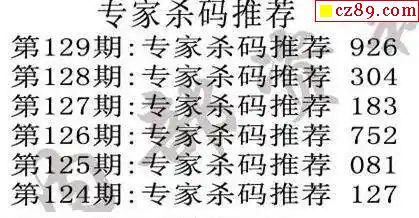 专家杀码推荐
cz89.com
第129期:专家杀码推荐 926
第128期:专家杀码推荐 304
第127期:专家杀码推荐 183
第126期:专家杀码推荐 752
第125期:专家杀码推荐 081
第124期:专家杀码推荐 127